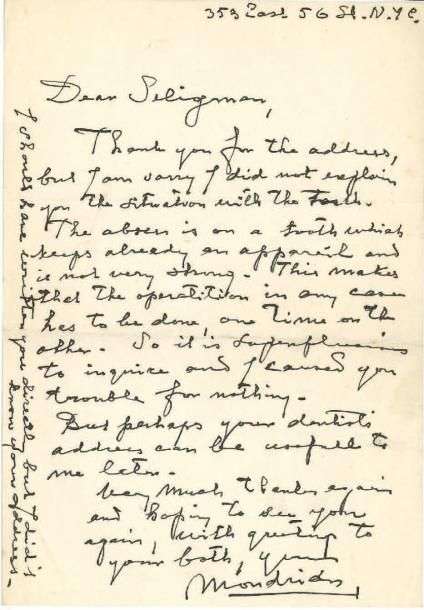 353 East 56 St. N.Y.C.
Dear Seligman,
Thank you for the address,
but I am sorry I did not explain
you the situation with the tooth.
The absces is on a tooth which
keeps already an appareil and
is not very strong. This makes
that the operatition in any case
has to be done, one time on the
other. So it is superfluous
to inquire and I caused you
trouble for nothing.
But perhaps your dentists
address can be usefull to
me later.
Very much thanks again
and hoping to see you
again, with greeting to
your both, yours
Mondrian,
I should have written you directly but I did't
know your address.